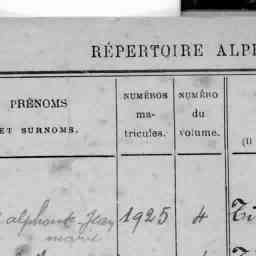 RÉPERTOIRE ALPH
PRÉNOMS
ET SURNOMS.
NUMÉROS
ma-
tricules.
NUMÉRO
du
volume.
alphonse Jean 1925 4
marie